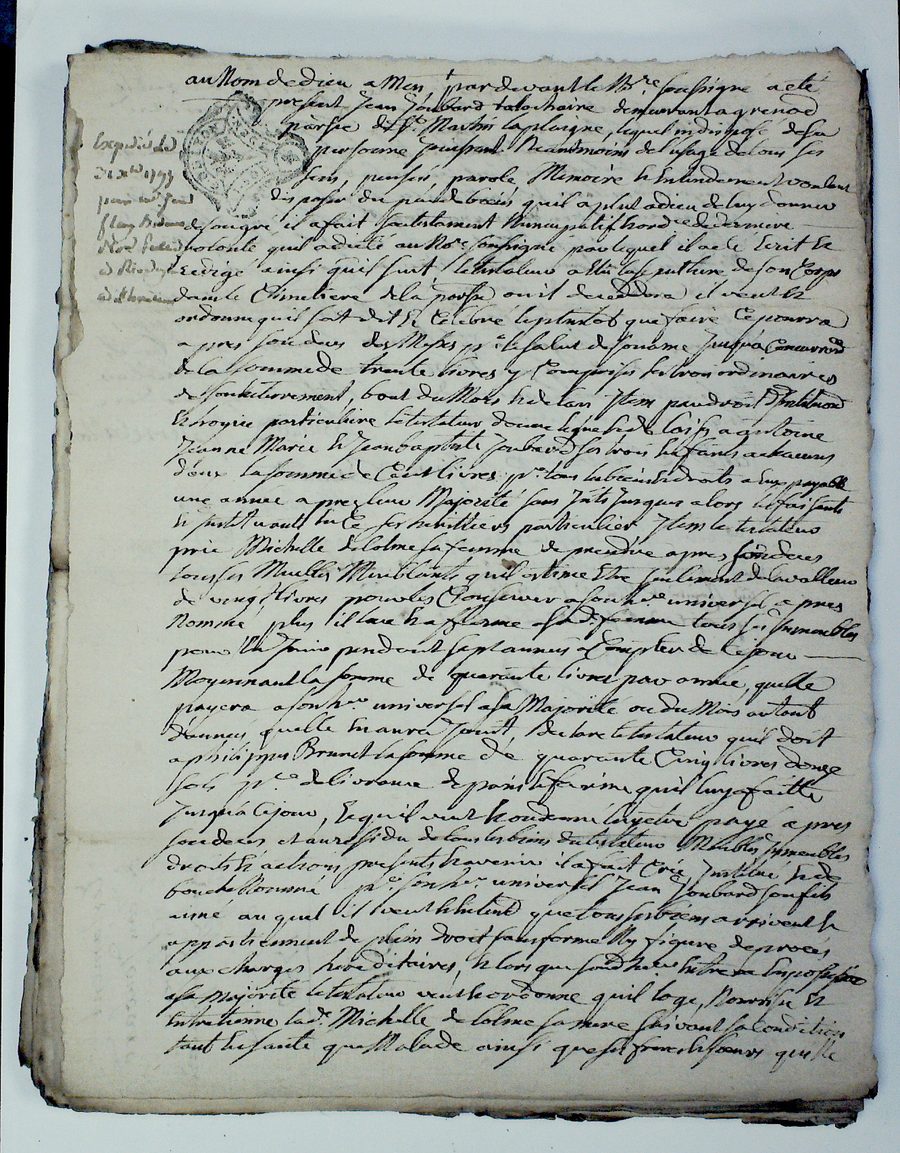 Expedié le
21 xbre 1793
au Nom de dieu amen par devant le Nre soussigné a eté
present Jean Joubard demeurant a grenod
parsse de St Martin laplaigne, lequel indisposé de sa
personne jouissant Neantmoins de l'usage de tous ses
sens pensée parole Memoire & Entendement voulant
disposer du peu de biens quil a plut a dieu de luy donner
de son gré il a fait son testament Nuncupatif & ordce de derniere
volonté quil a dicté au Nre soussigné par lequel il a eté Ecrit &
redigé ainsi quil suit le testateur a Elu la sepulture de son Corps
dans le Cimetiere de la parsse ou il decedera il veut &
ordonne quil soit dit & Celebré le plustot que faire Ce pourra
apres son deces des Messes pr le salut de son ame jusqu'a Concurrence
de la somme de trente livres y Compris les trois ordinaires
de son Enterrement, bout du Mois & de l'an Item par droit d'institution
& hoirie particuliere le testateur donne legue & de laisse a antoine
Jeanne Marie & Jean baptiste Joubard ses trois Enfants a chacuns
d'eux la somme de Cent livres pr tous leurs biens & droits a Eux payable
une année apres leur Majorité sans Intt jusques alors les faisants
& instituants En Ce ses heritiers particulier Item le testateur
prie Michelle Delolme sa femme de prendre apres son deces
tous ses Meubles Meublants quil estime Etre seulement de la valleur
de vingt livres pour les Conserver a son her universel cy apres
Nommé plus il loue & afferme a sa de femme tous ses Immeubles
pour En jouir pendant sept années a Compter de Ce jour
Moyennant la somme de quarante livres par année, quelle
payera a son her universel a sa Majorité ou du Mois autant
d'années quelle En aura jouit, declare le testateur quil doit
a philippes Brunet la somme de quarante Cinq livres douze
sols pr delivrance de pain & farine quil luy a faitte
jusqu'a Ce jour, Et quil veut & ordonne luy etre payé apres
son deces et au residu de tous les biens du testateur Meubles Immeubles
droits & actions presents & avenir il a fait Crée Institue & de
bouche Nommé pr son her universel Jean Joubard son fils
ainé auquel il veut & Entend que tous ses biens arrivent &
appartiennent de plein droit sans forme Ny figure de proces
aux charges hereditaires, & lors que son dt her Entrera En possession
a sa Majorité le testateur veut & ordonne quil loge, Nourrisse &
Entretienne la de Michelle Delolme sa mere suivant sa Condition
tant En santé que Malade ainsi que ses freres & soeurs quelle